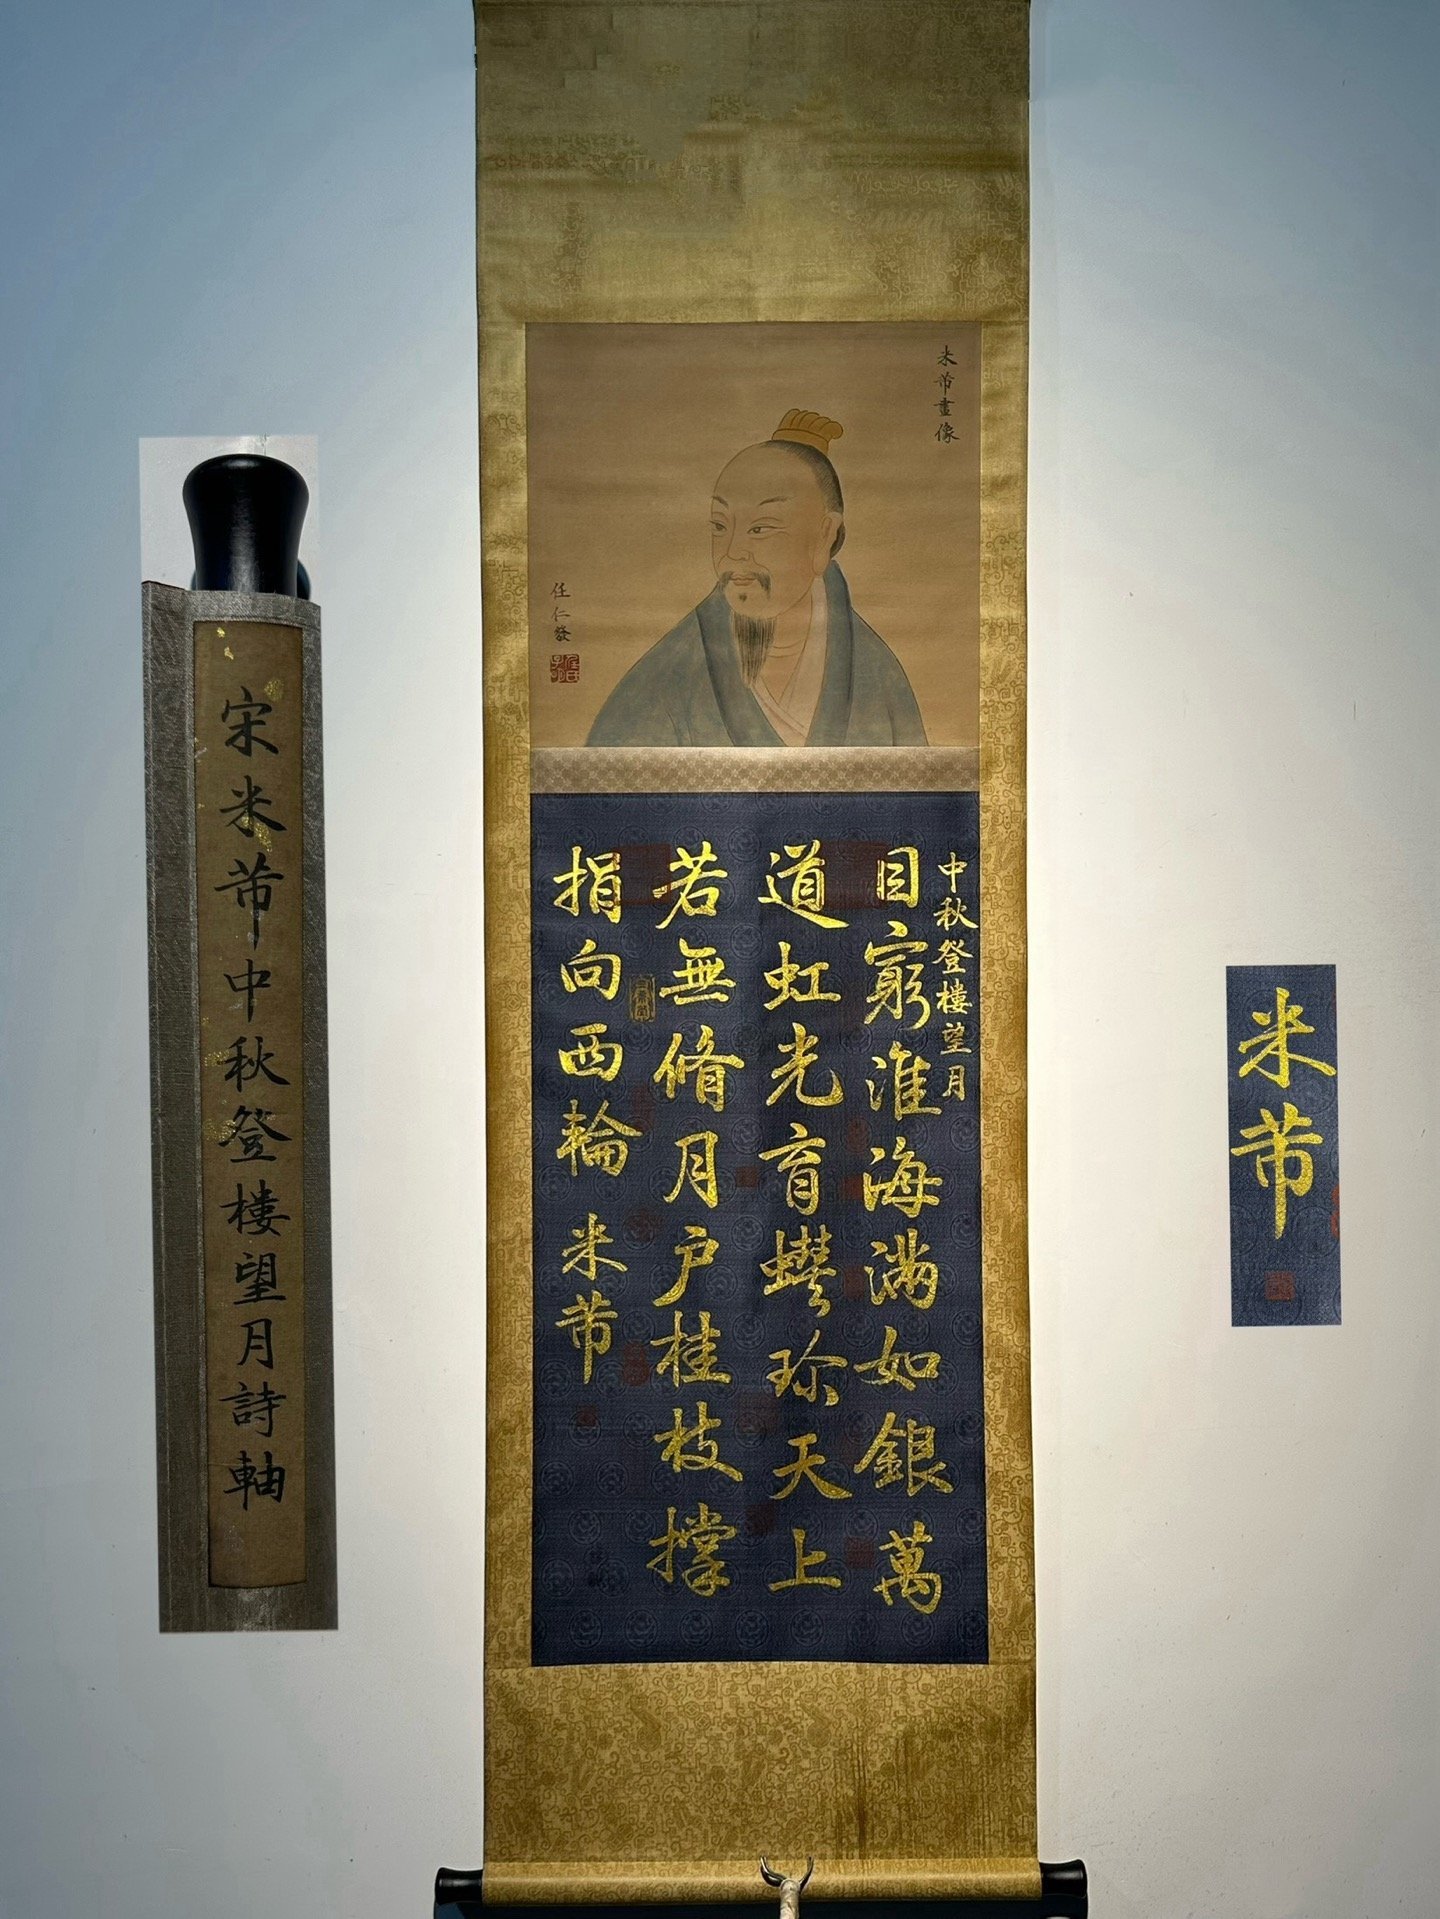 宋米芾中秋登樓望月詩軸
米芾畫像
任仁發
中秋登樓望月
目窮淮海滿如銀萬
道虹光育蠙珍天上
若無脩月户桂枝撐
捐向西輪
米芾
米芾